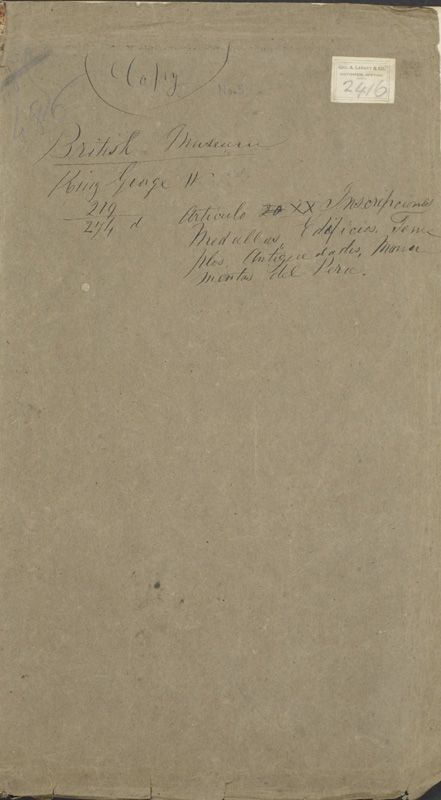 Copy
No. 5
Geo. A. Leavitt & Co.
2416
486
British Museum
King George
219
274 d
Articulo 20 XX Inscripciones
Medallas, Edificios, Tem
plos, Antiguedades, Monu
mentos del Peru.